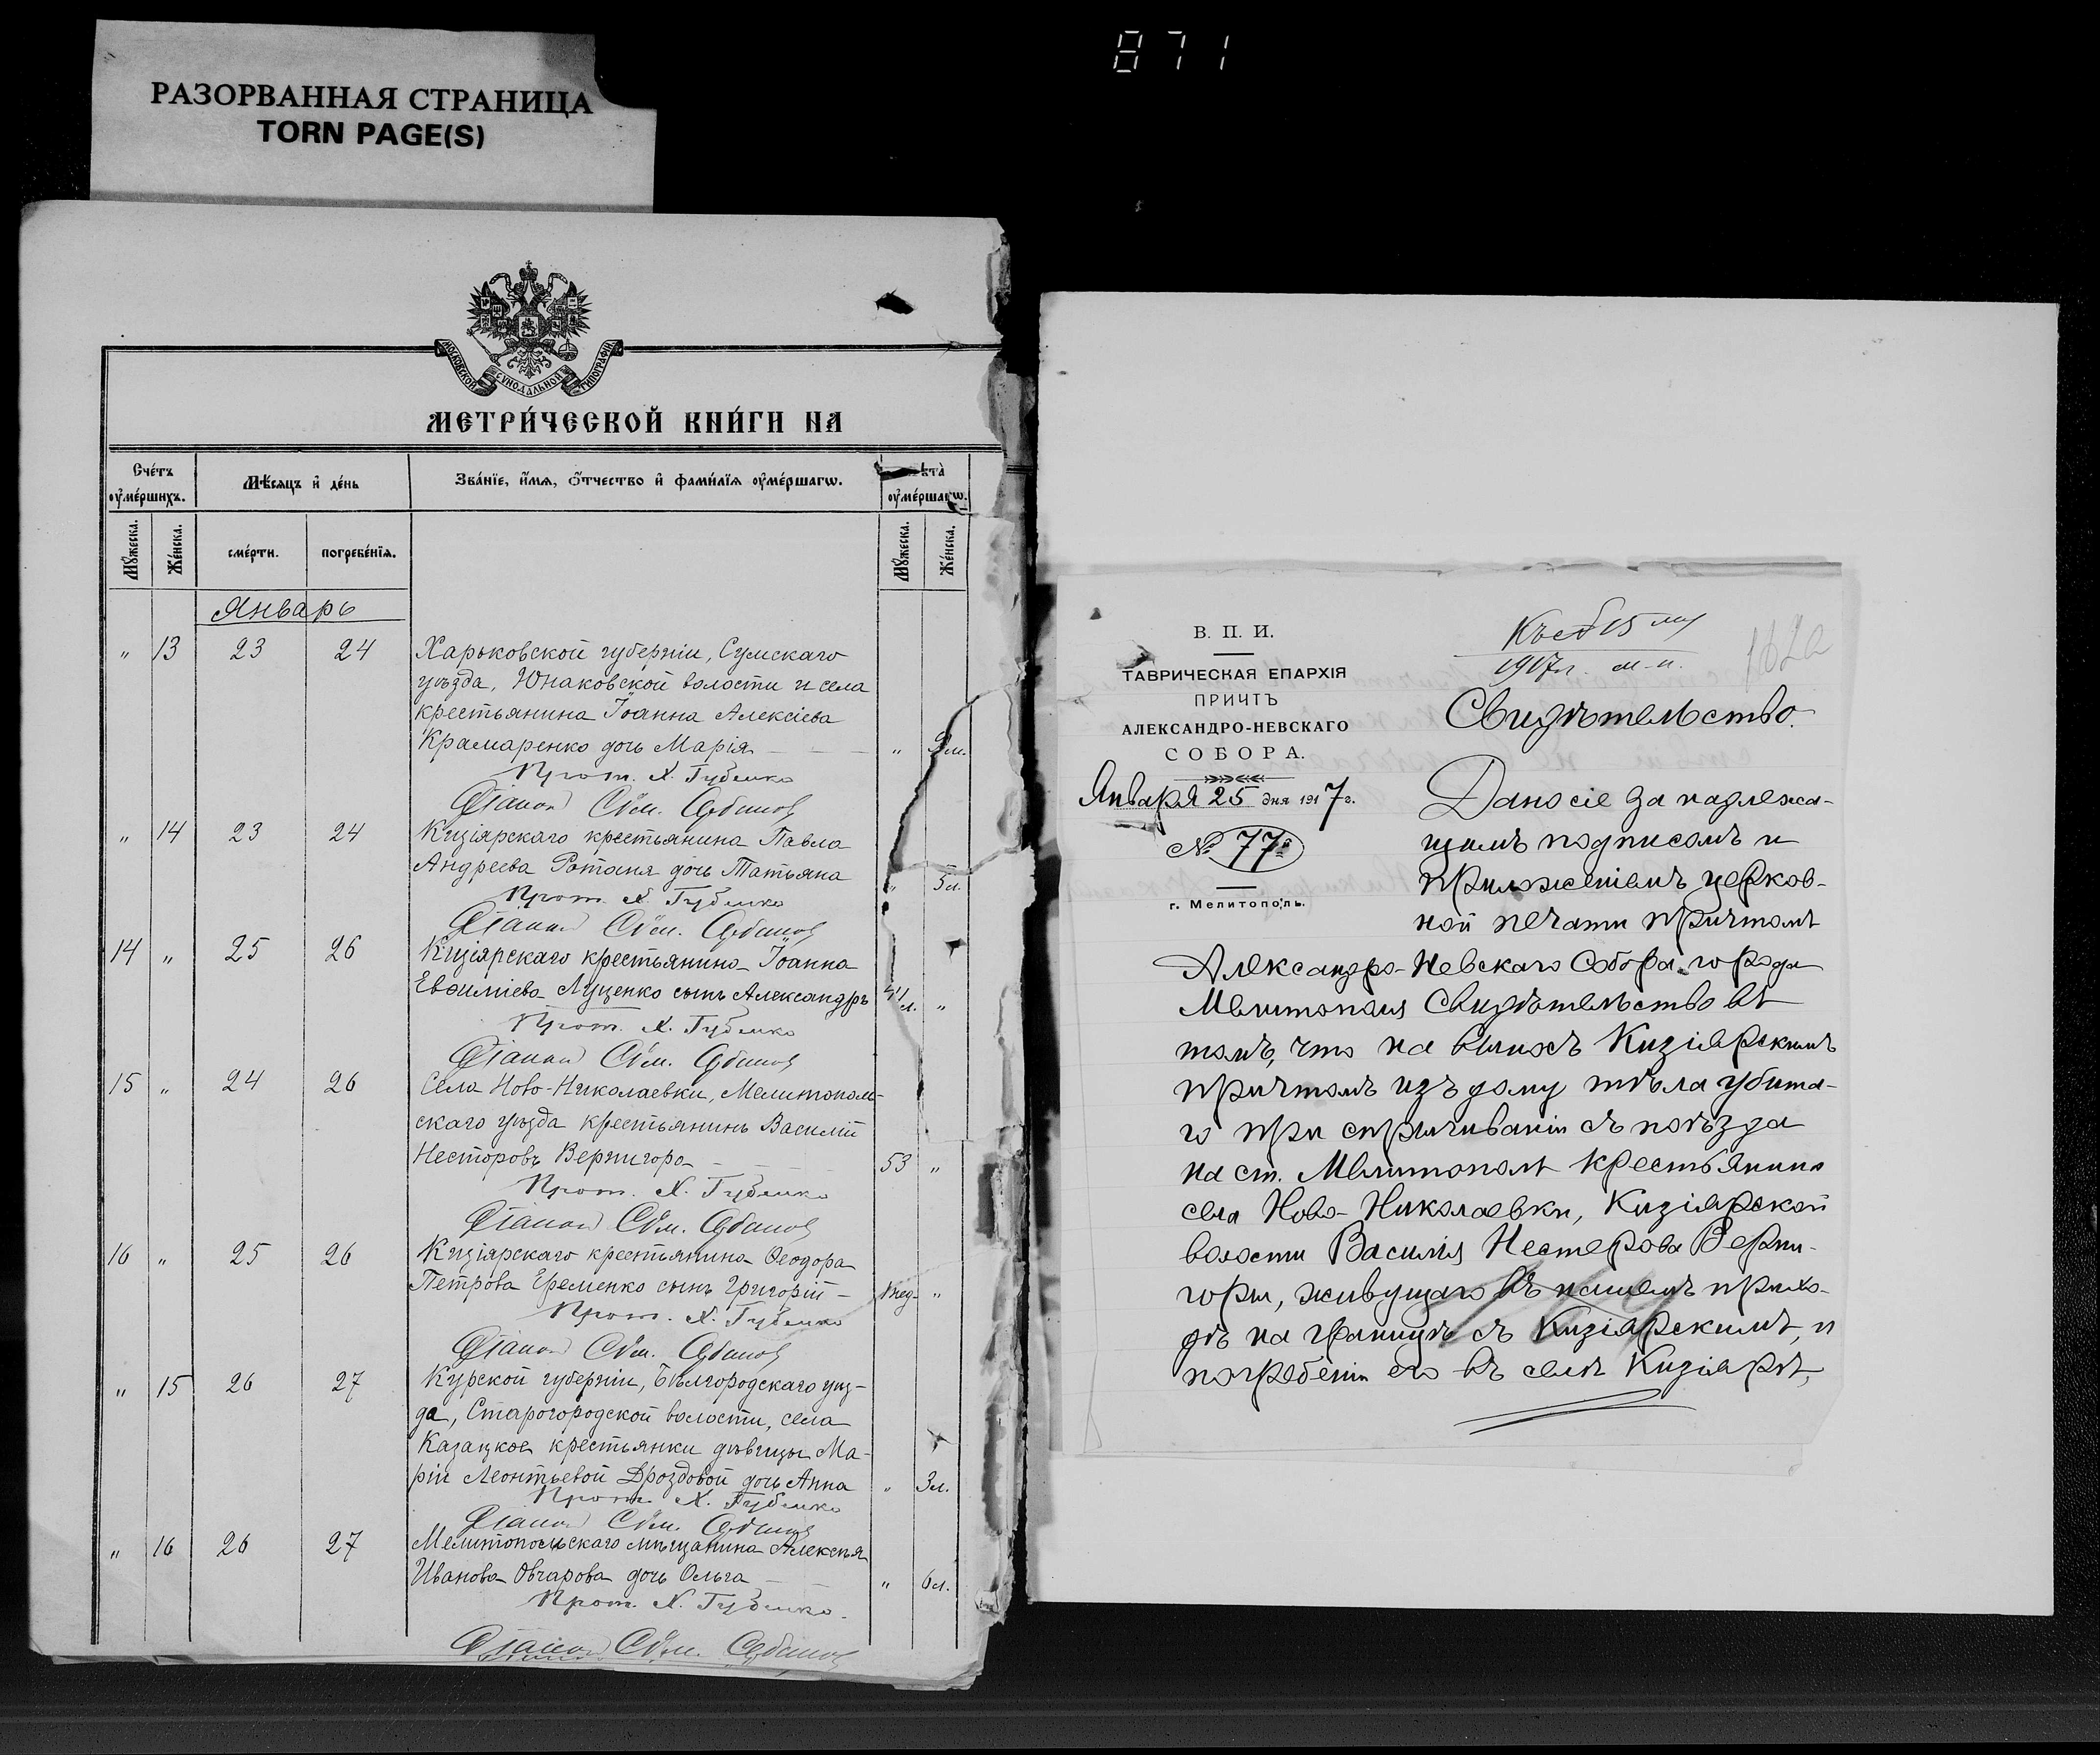 871
РАЗОРВАННАЯ СТРАНИЦА
TORN PAGE(S)
МОСКОВСКОЙ СѴНОДАЛЬНОЙ ТИПОГРАФІИ
МЕТРИ́ЧЕСКОЙ КНИ́ГИ НА
Сче́тъ
ᲂу҆ме́ршихъ.
Мѣ́сяцъ и҆ де́нь
Зва́нїе, и҆́мѧ, ѻ҆́тчество и҆ фами́лїѧ ᲂу҆ме́ршагѡ.
ᲂу҆ме́ршагѡ.
Мꙋ́жеска.
Же́нска.
сме́рти.
погребе́нїѧ.
Мꙋ́жеска.
Же́нска.
Январь
" 13 23 24 Харьковской губерніи, Сумскаго
уѣзда, Юнаковской волости и села
крестьянина Іоанна Алексіева
Крамаренко дочь Марія - - - " 9 м.
Прот. Х. Губенко
Діакон
" 14 23 24 Кизіярскаго крестьянина Павла
Андреева Ротаня дочь Татьяна " 5 л.
Прот. Х. Губенко
Діакон
14 " 25 26 Кизіярскаго крестьянина Іоанна
Евѳиміева Луценко сынъ Александръ л. "
Прот. Х. Губенко
Діакон
15 " 24 26 Села Ново-Николаевки, Мелитополь-
скаго уѣзда крестьянинъ Василій
Несторовъ Вернигора - - - 53 "
Прот. Х. Губенко
Діакон
16 " 25 26 Кизіярскаго крестьянина Ѳеодора
Петрова Еременко сынъ Григорій - нед. "
Прот. Х. Губенко
Діакон
" 15 26 27 Курской губерніи, Бѣлгородскаго уѣз-
да, Старогородской волости, села
Казацкое крестьянки дѣвицы Ма-
ріи Леонтьевой Дроздовой дочь Анна " 3 л.
Прот. Х. Губенко
Діакон
" 16 26 27 Мелитопольскаго мѣщанина Алексѣя
Иванова Овчарова дочь Ольга - - " 6 л.
Прот. Х. Губенко.
Діакон
В. П. И.
ТАВРИЧЕСКАЯ ЕПАРХІЯ
ПРИЧТЪ
АЛЕКСАНДРО-НЕВСКАГО
СОБОРА.
Января 25 дня 1917 г.
№ 77
г. Мелитополь.
1917 г. м. п.
162а
Свидѣтельство.
Дано сіе за надлежа-
щимъ подписомъ и
приложеніемъ церков-
ной печати причтомъ
Александро-Невскаго Собора города
Мелитополя Свидѣтельство въ
томъ, что на выносъ Кизіярскимъ
причтомъ изъ дому тѣла убита-
го при спрыгиваніи съ поѣзда
на ст. Мелитополь крестьянина
села Ново-Николаевки, Кизіярской
волости Василія Нестерова Верни-
горы, живущаго въ нашемъ прихо-
дѣ на границѣ съ Кизіярскимъ, и
погребеніи его въ селѣ Кизіярѣ,